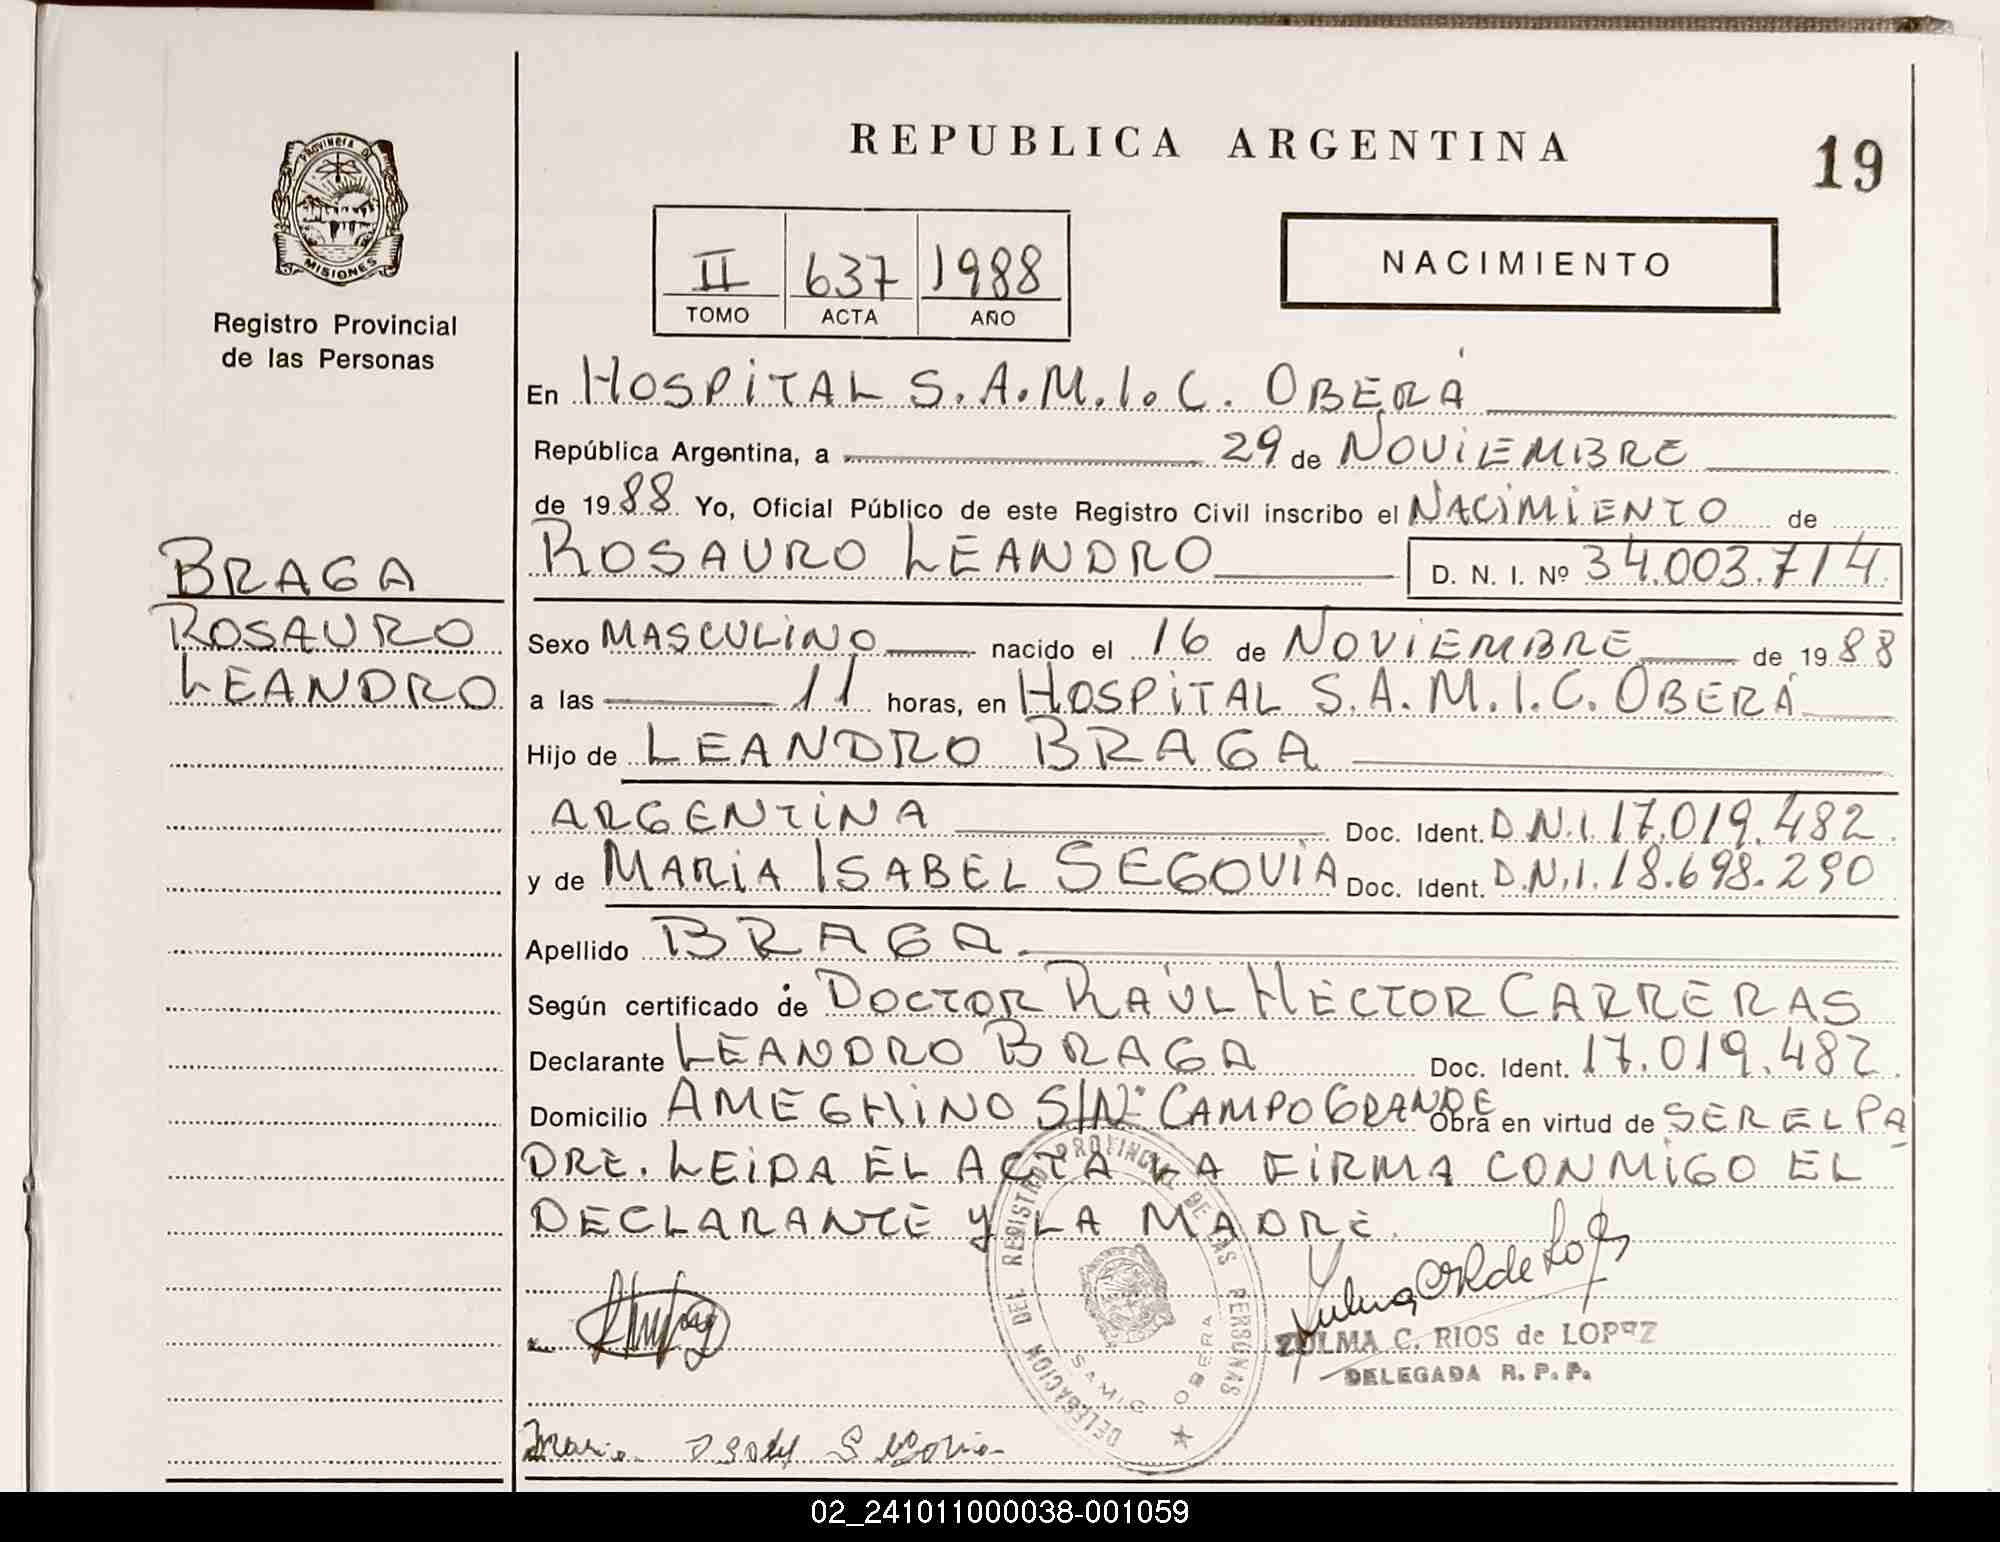 PROVINCIA DE
MISIONES
Registro Provincial
de las Personas
BRAGA
ROSAURO
LEANDRO
REPUBLICA ARGENTINA
19
II 637 1988
TOMO ACTA AÑO
NACIMIENTO
En HOSPITAL S.A.M.I.C. OBERÁ
República Argentina, a 29 de NOVIEMBRE
de 1988 Yo, Oficial Público de este Registro Civil inscribo el NACIMIENTO de
ROSAURO LEANDRO D. N. I. Nº 34.003.714
Sexo MASCULINO nacido el 16 de NOVIEMBRE de 1988
a las 11 horas, en HOSPITAL S.A.M.I.C. OBERÁ
Hijo de LEANDRO BRAGA
ARGENTINA Doc. Ident. D.N.I. 17.019.482
y de MARIA ISABEL SEGOVIA Doc. Ident. D.N.I. 18.698.290
Apellido BRAGA
Según certificado de DOCTOR RAÚL HECTOR CARRERAS
Declarante LEANDRO BRAGA Doc. Ident. 17.019.482
Domicilio AMEGHINO S/Nº CAMPO GRANDE Obra en virtud de SER EL PA
DRE. LEIDA EL ACTA LA FIRMA CONMIGO EL
DECLARANTE Y LA MADRE.
DELEGACION DEL REGISTRO PROVINCIAL DE LAS PERSONAS
SAMIC OBERA
ZULMA C. RIOS de LOPEZ
DELEGADA R. P. P.
Maria Isabel Segovia
02_241011000038-001059